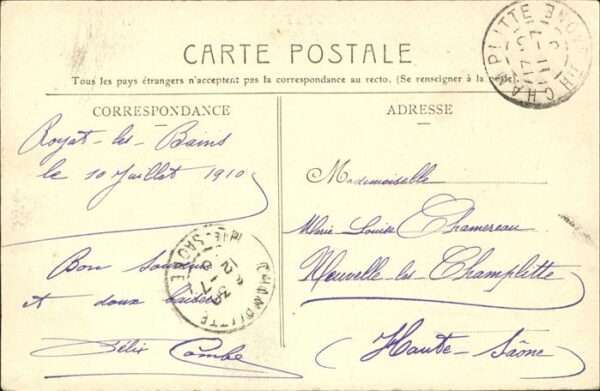 CARTE POSTALE
Tous les pays étrangers n'acceptent pas la correspondance au recto. (Se renseigner à la
CORRESPONDANCE
Royat-les-Bains
le 10 Juillet 1910
Bon souvenir
et doux baisers
Félix Combe
ADRESSE
Mademoiselle
Marie Louise Chamereau
Neuvelle-les-Champlitte
(Haute-Saône)
CHAMPLITTE
CHAMPLITTE